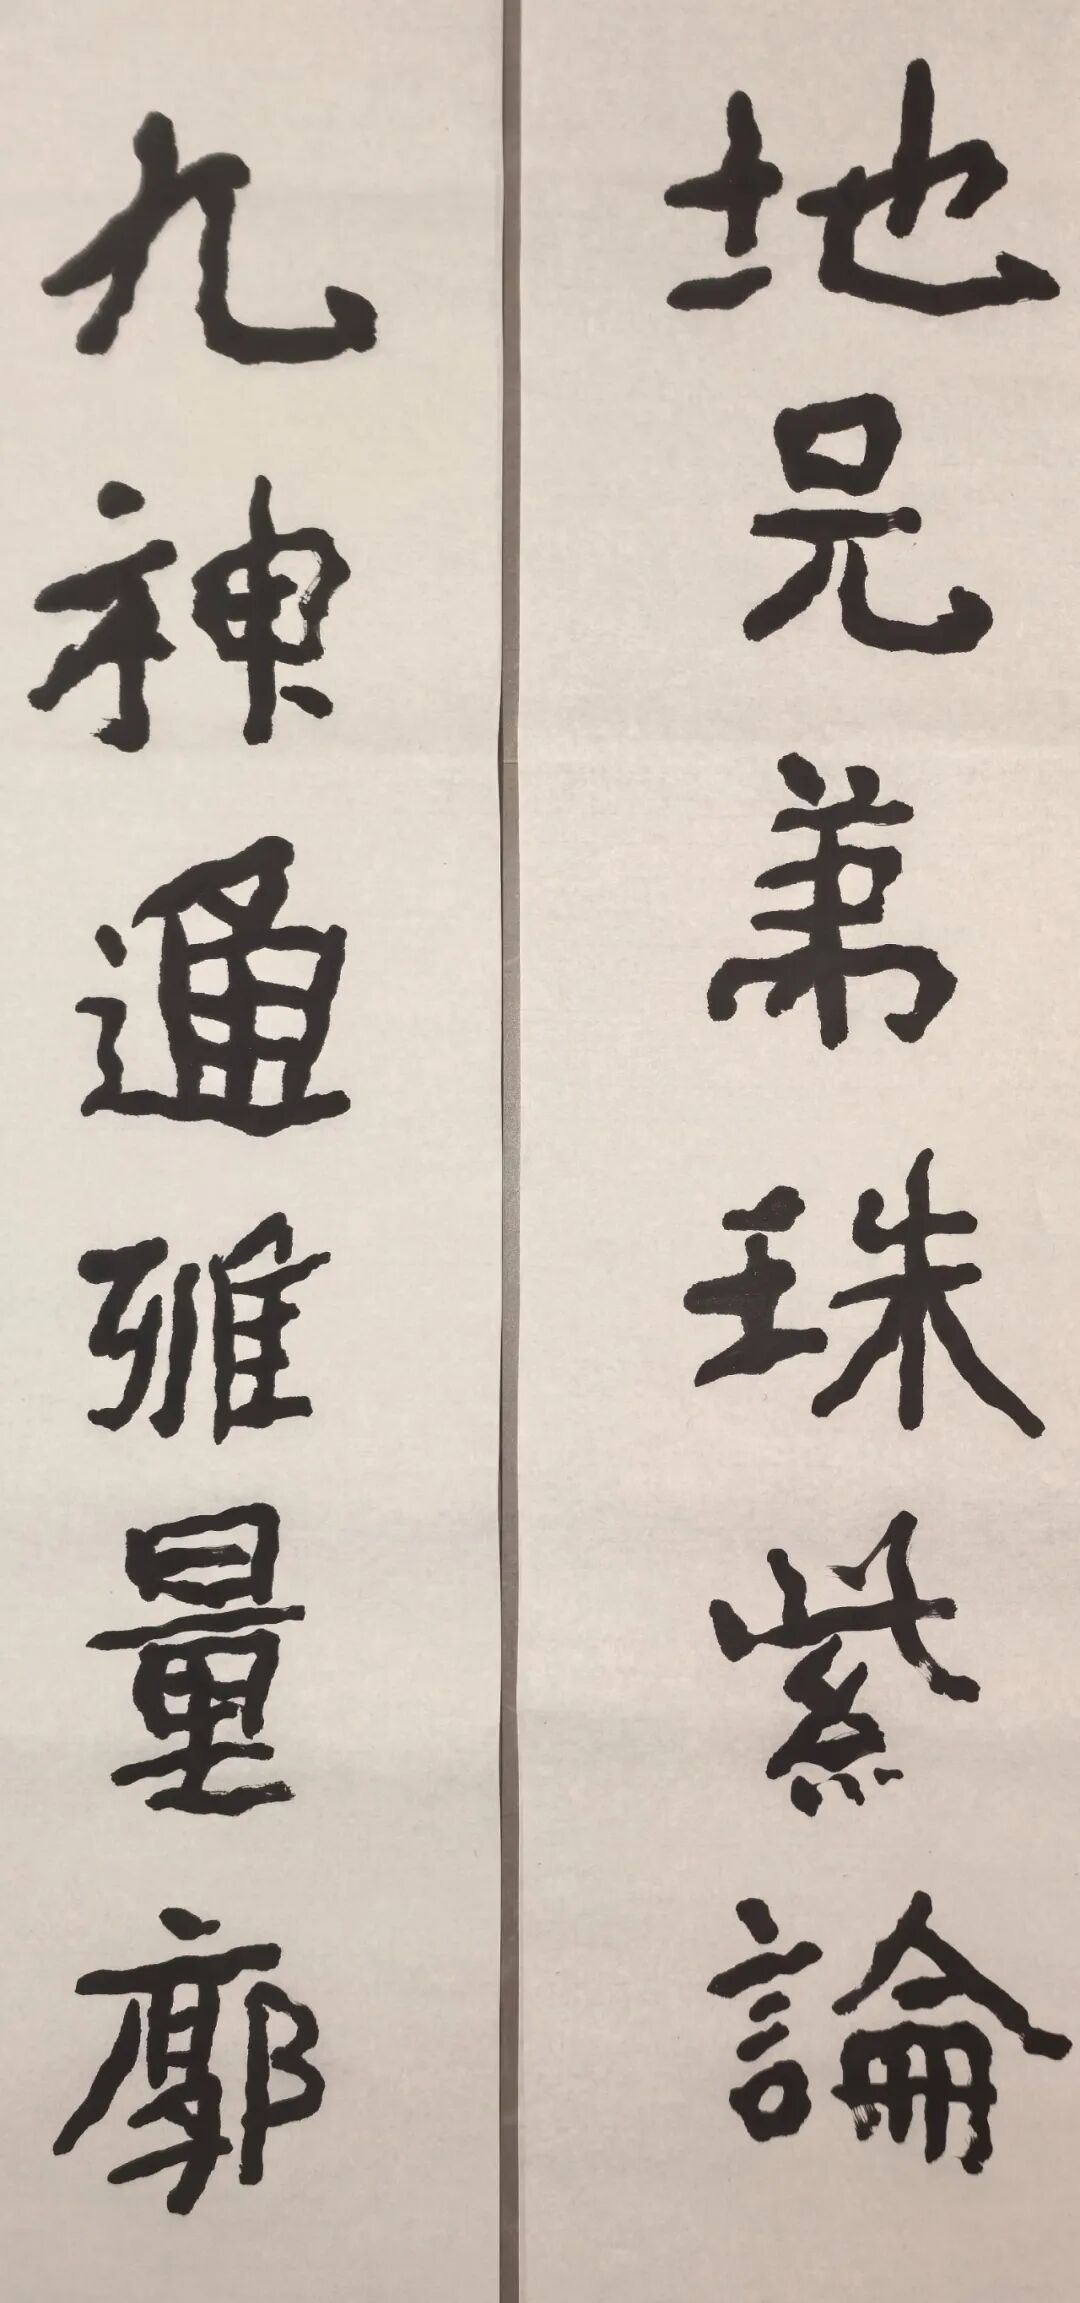 地兄弟珠紫論
九神通雅量廓